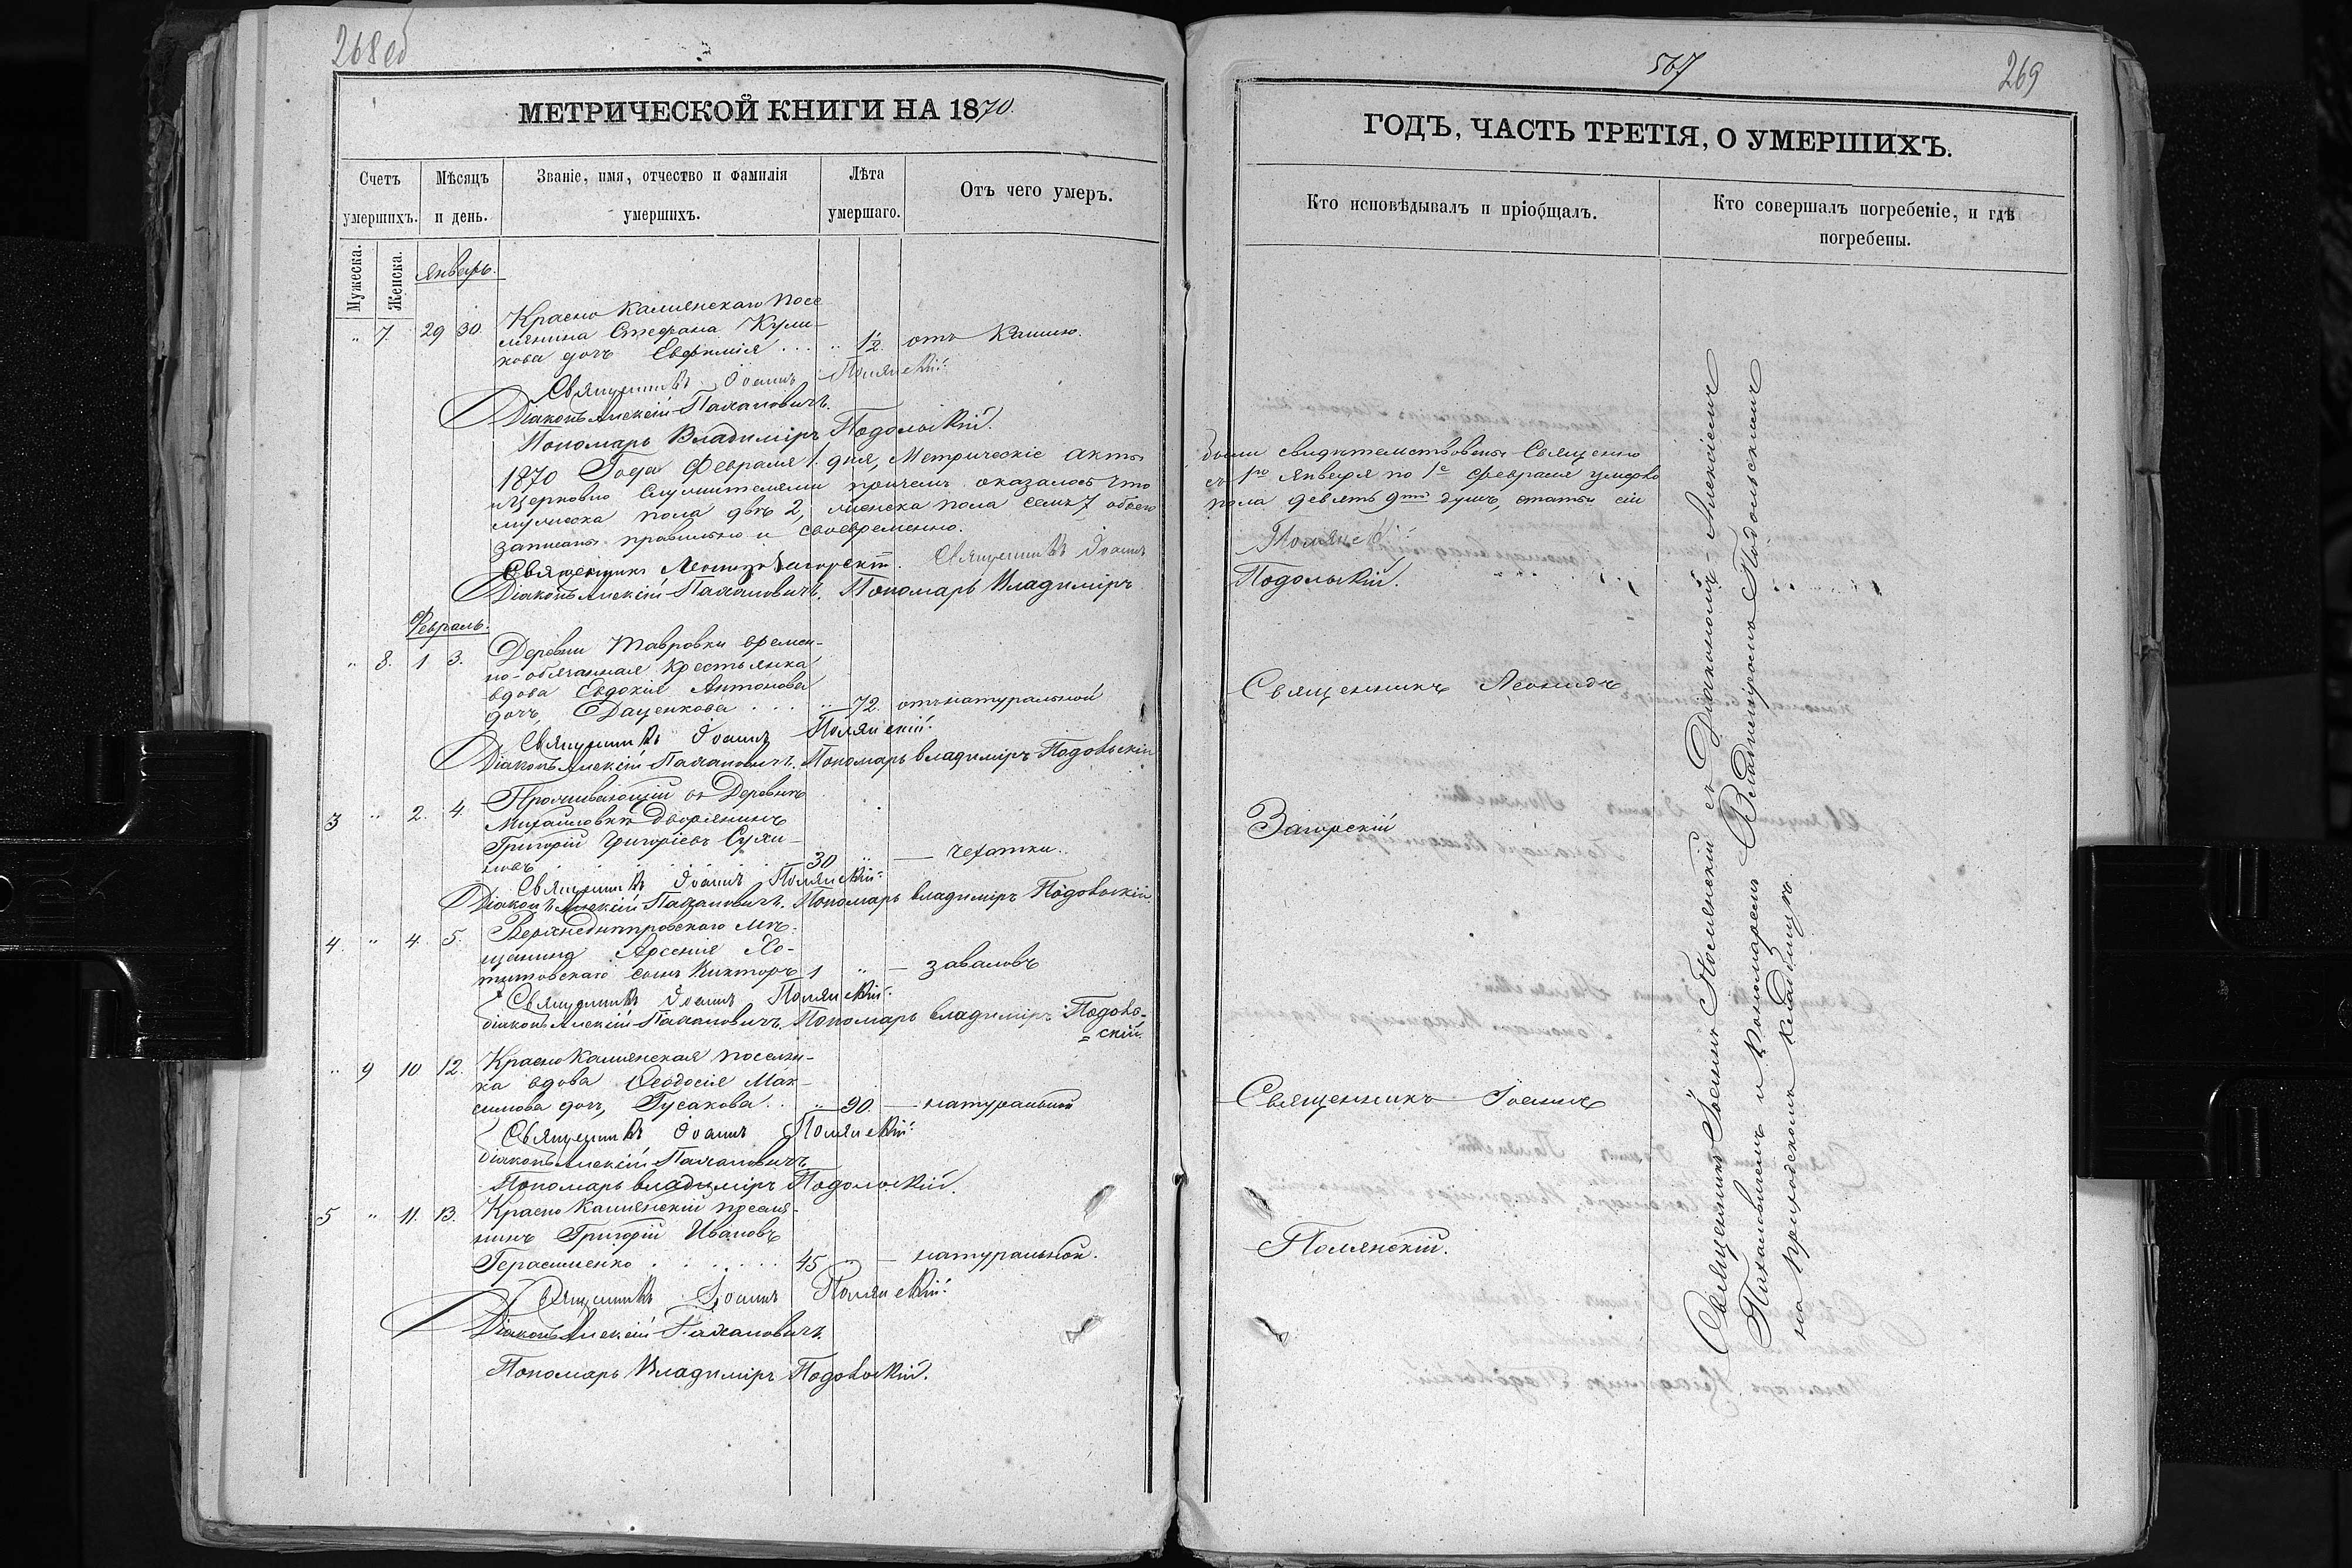 268об
МЕТРИЧЕСКОЙ КНИГИ НА 1870.
Счетъ умершихъ.
Мѣсяцъ и день.
Званіе, имя, отчество и фамилія умершихъ.
Лѣта умершаго.
Отъ чего умеръ.
Мужеска.
Женска.
Январь.
" 7. 29 30 Красно Камянскаго посе
лянина Стефана Кули-
кова дочь Евфимія . . . " 1/2. отъ Кашлю.
Священникъ Іоаннъ Полянскій.
Діаконъ Алексій Паханович.
Пономарь Владиміръ Подольскій.
1870 Года Февраля 1. дня, Метрическіе акты
Церковно Служителями причемъ оказалось что
мужеска пола двѣ 2, женска пола семь 7 обоего
записаны правильно и своевременно.
Священникъ Леонидъ Загорскій. Священникъ Іоаннъ
Діаконъ Алексій Паханович. Пономарь Владиміръ
Февраль.
" 8. 1 3. Деревни Тавровки времен-
но-обязанная крестьянка
вдова Евдокія Антонова
дочь, Даценкова . . . " 72. отъ натуральной
Священникъ Іоаннъ Полянскій.
Діаконъ Алексій Паханович. Пономарь Владиміръ Подольскій
3 " 2. 4. Проживающій въ Деревнѣ
Михайловкѣ дворянинъ
Григорій Григоріевъ
30 " — чехотки.
Священникъ Іоаннъ Полянскій.
Діаконъ Алексій Паханович. Пономарь Владиміръ Подольскій
4. " 4. 5. Верхнеднѣпровскаго мѣ-
щанина Арсенія Хо-
титовскаго сынъ Викторъ 1 " — заваловъ
Священникъ Іоаннъ Полянскій.
Діаконъ Алексій Паханович. Пономарь Владиміръ Подоль-
=скій.
" 9 10 12. Красно Камянская поселян-
ка вдова Феодосія Мак-
симова дочь, Гусакова . . " 90. — натуральной
Священникъ Іоаннъ Полянскій.
Діаконъ Алексій Паханович
Пономарь Владиміръ Подольскій.
5 " 11. 13. Красно Камянскій поселя-
нинъ Григорій Ивановъ
Герасименко . . . . . . 45 " — натуральной.
Священникъ Іоаннъ Полянскій.
Діаконъ Алексій Паханович
Пономарь Владиміръ Подольскій.
567
269
ГОДЪ, ЧАСТЬ ТРЕТІЯ, О УМЕРШИХЪ.
Кто исповѣдывалъ и пріобщалъ.
Кто совершалъ погребеніе, и гдѣ погребены.
были свидѣтельствованы Священно
съ 1го Января по 1е Февраля умерло
пола девять 9ть душъ, статьи сіи
Полянскій
Подольскій.
Священникъ Леонидъ
Загорскій
Священникъ Іоаннъ
Полянскій.
Священникъ Іоаннъ Полянскій съ Діакономъ Алексіемъ
Пахановичемъ и Пономаремъ Владиміромъ Подольскимъ
на приходскомъ кладбищѣ.